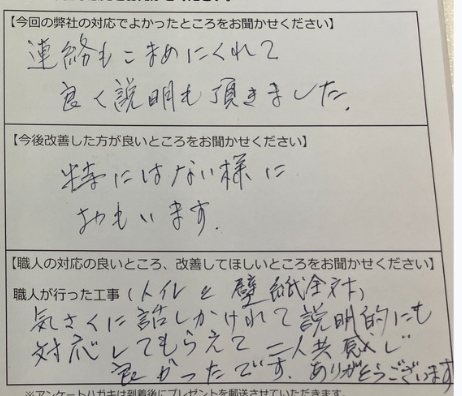 【今回の弊社の対応でよかったところをお聞かせください】
連絡もこまめにくれて
良く説明も頂きました.
【今後改善した方が良いところをお聞かせください】
特にはない様に
おもいます.
【職人の対応の良いところ、改善してほしいところをお聞かせください】
職人が行った工事（トイレと壁紙全対）
気さくに話しかけれて説明的にも
対応してもらえて二人共感じ
良かったです. ありがとうございます
※アンケートハガキは到着後にプレゼントを郵送させていただきます。